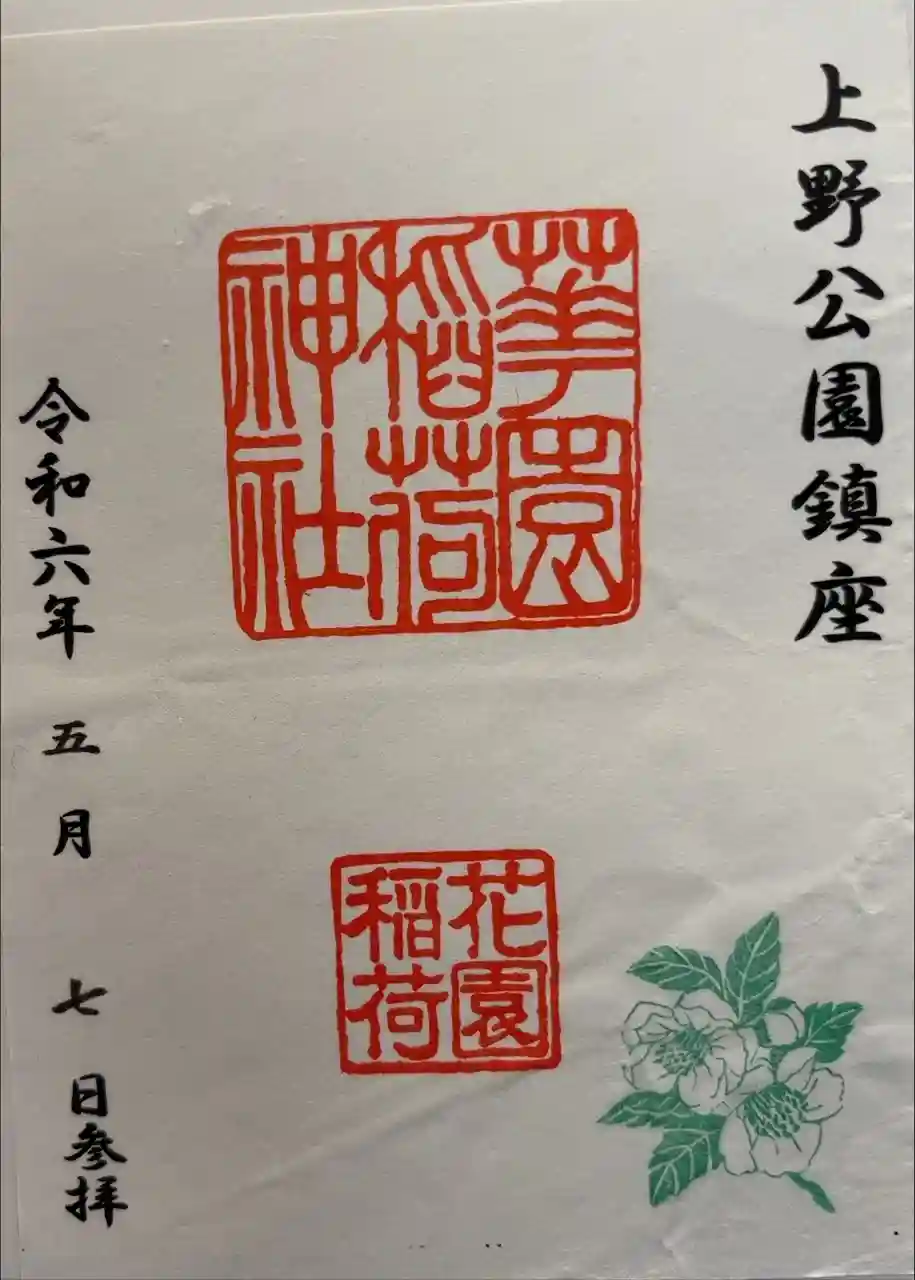 上野公園鎮座
華園
稲荷
神社
花園
稲荷
令和六年 五月 七日参拝